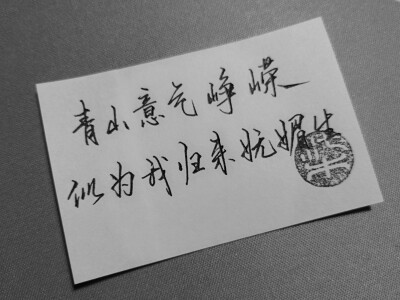 青山意气峥嵘
似为我归来妩媚生